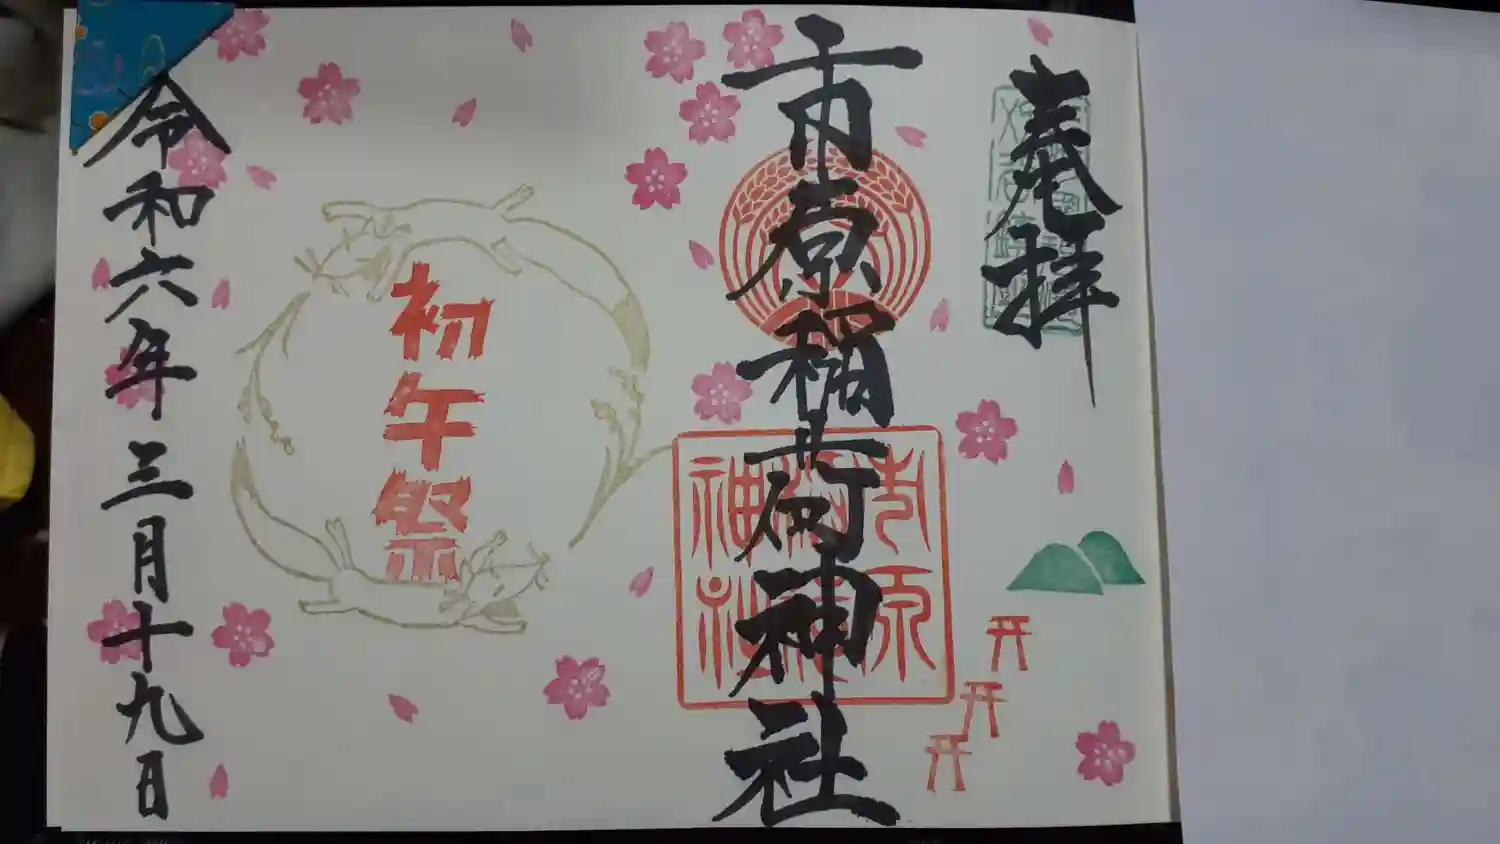 奉拝
市原稲荷神社
市原稲荷神社
初午祭
令和六年三月十九日